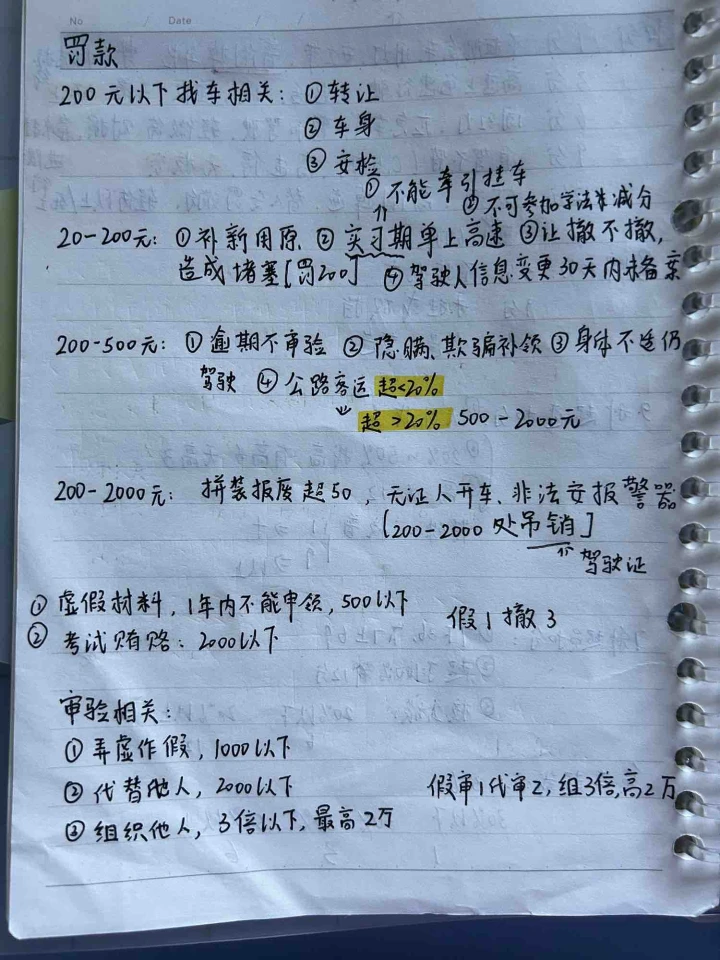 No
Date
罚款
200元以下找车相关：①转让
②车身
③安检
①不能牵引挂车
②不可参加学法生减分
20-200元：①补新用原 ②实习期单上高速 ③让撤不撤，
造成堵塞[罚200] ④驾驶人信息变更30天内未备案
200-500元：①逾期不审验 ②隐瞒、欺骗补领 ③身体不适仍
驾驶 ④公路客运超<20%
超>20% 500-2000元
200-2000元：拼装报废超50，无证人开车、非法安报警器
[200-2000处吊销]
驾驶证
①虚假材料，1年内不能申领，500以下
假1撤3
②考试贿赂：2000以下
审验相关：
①弄虚作假，1000以下
②代替他人，2000以下
假审1代审2，组3倍，高2万
③组织他人，3倍以下，最高2万